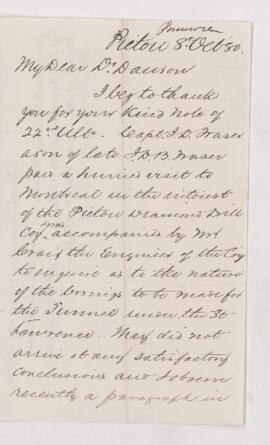 Pictou 8 Oct 80.
My Dear Dr Dawson
I beg to thank
you for your kind note of
22nd Ulto. Capt. J. D. Fraser
a son of late J. D. B. Fraser
paid a hurried visit to
Montreal in the interest
of the Pictou Diamond Drill
Coy accompanied by Mr
Craig the Engineer of the Coy
to enquire as to the nature
of the borings to be made for
the Tunnel under the St
Lawrence. They did not
arrive at any satisfactory
conclusions and I observe
recently a paragraph in